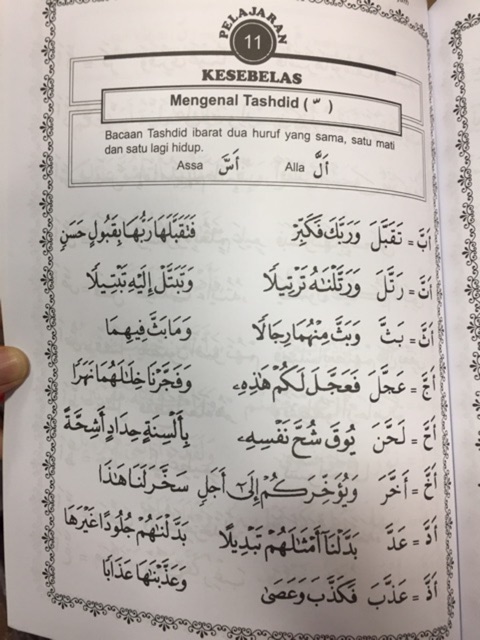 PELAJARAN
11
KESEBELAS
Mengenal Tashdid ( ّ )
Bacaan Tashdid ibarat dua huruf yang sama, satu mati
dan satu lagi hidup.
Assa أَسَّ Alla أَلَّ
أَبَّ = تَقَبَّلَ وَرَبَّكَ فَكَبِّرْ فَتَقَبَّلَهَا رَبُّهَا بِقَبُولٍ حَسَنٍ
أَتَّ = رَتَّلَ وَرَتَّلْنَٰهُ تَرْتِيلًا وَتَبَتَّلْ إِلَيْهِ تَبْتِيلًا
أَثَّ = بَثَّ وَبَثَّ مِنْهُمَا رِجَالًا وَمَا بَثَّ فِيهِمَا
أَجَّ = عَجَّلَ فَعَجَّلَ لَكُمْ هَٰذِهِۦ وَفَجَّرْنَا خِلَٰلَهُمَا نَهَرًا
أَحَّ = لَحَّنَ يُوقَ شُحَّ نَفْسِهِۦ بِأَلْسِنَةٍ حِدَادٍ أَشِحَّةً
أَخَّ = أَخَّرَ وَيُؤَخِّرَكُمْ إِلَىٰٓ أَجَلٍ سَخَّرَ لَنَا هَٰذَا
أَدَّ = عَدَّ بَدَّلْنَآ أَمْثَٰلَهُمْ تَبْدِيلًا بَدَّلْنَٰهُمْ جُلُودًا غَيْرَهَا
أَذَّ = عَذَّبَ فَكَذَّبَ وَعَصَىٰ وَعَذَّبْنَٰهَا عَذَابًا